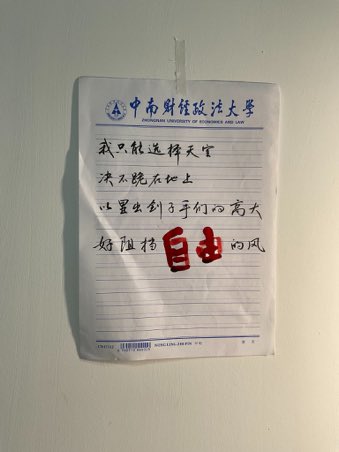 中南财经政法大学
ZHONGNAN UNIVERSITY OF ECONOMICS AND LAW
我只能选择天空
决不跪在地上
以显出刽子手们的高大
好阻挡自由的风